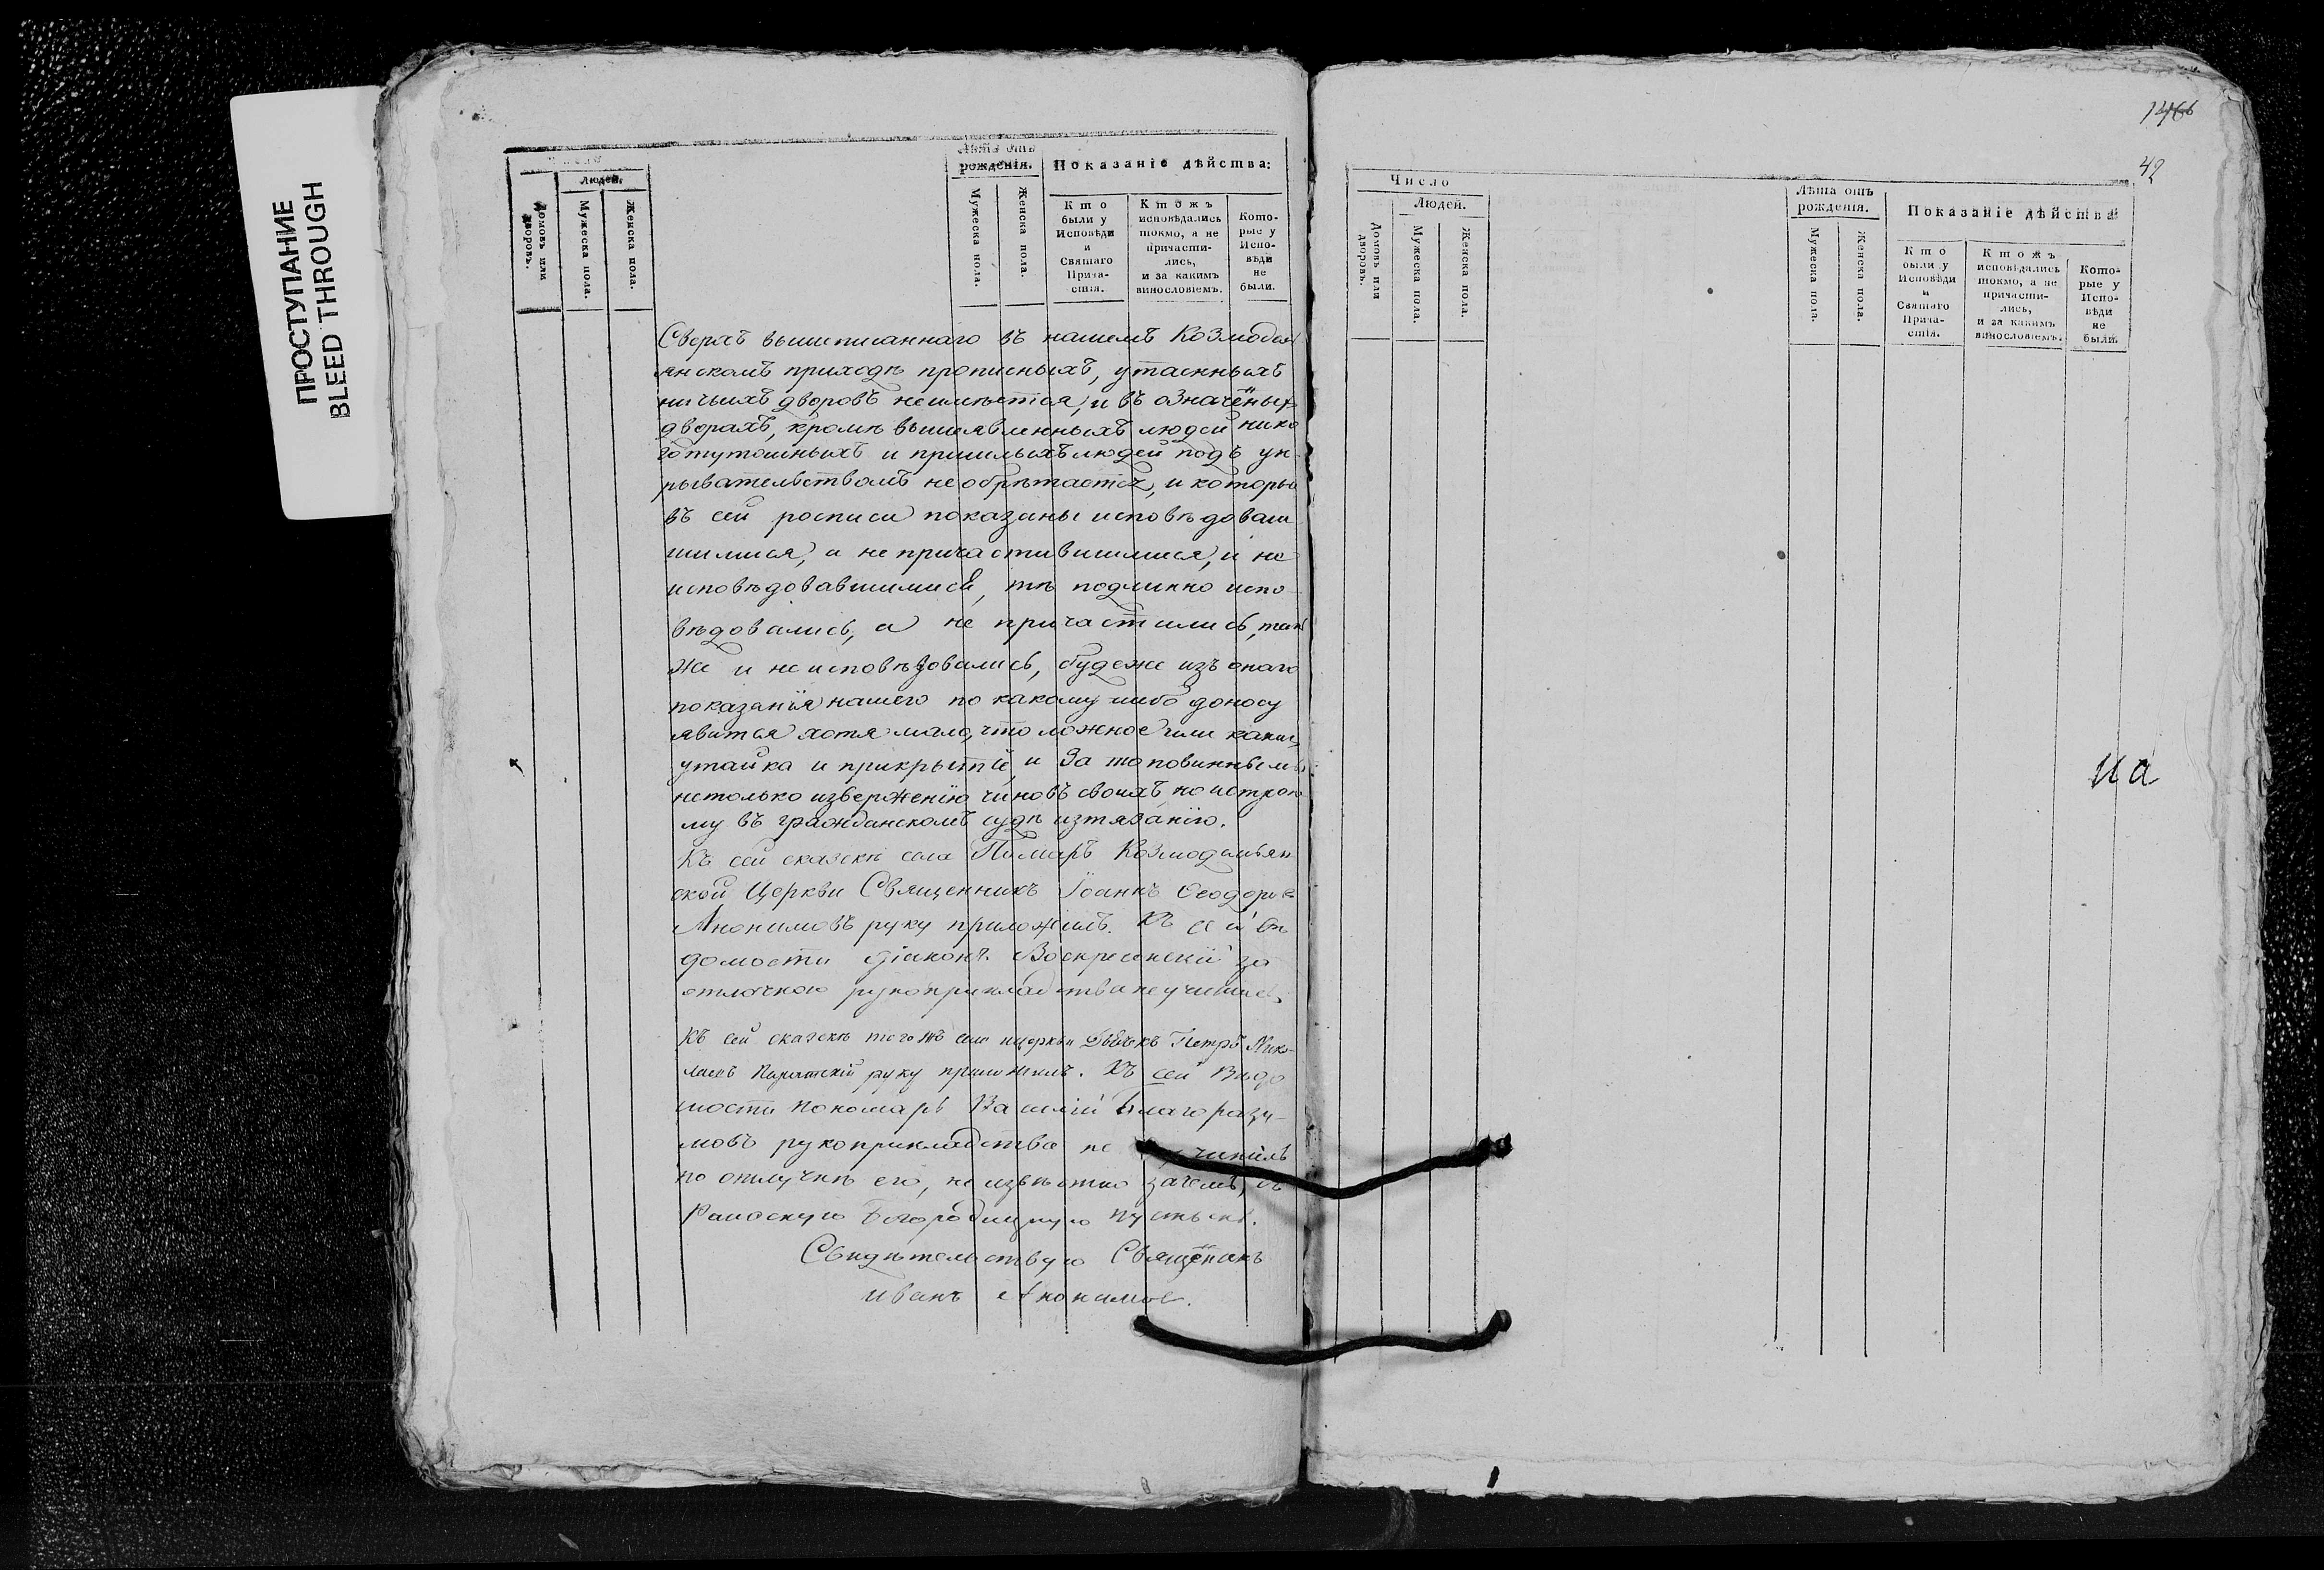 ПРОСТУПАНИЕ
BLEED THROUGH
Число
Людей.
Домовъ или дворовъ.
Мужеска пола.
Женска пола.
Лѣта отъ рожденія.
Мужеска пола.
Женска пола.
Показаніе дѣйства:
Кто были у Исповѣди и Святаго Прича-стія.
Ктожъ исповѣдались токмо, а не причасти-лись, и за какимъ винословіемъ.
Кото-рые у Испо-вѣди не были.
Сверхъ вышеписаннаго въ нашемъ Козмодем
янскомъ приходѣ прописныхъ, утаенныхъ
ничьихъ дворовъ неимѣется, и въ означеныхъ
дворахъ, кромѣ вышеявленныхъ людей нико
го тутошныхъ и пришлыхъ людей подъ ук
рывательствомъ необрѣтается, и которые
въ сей росписи показаны исповѣдовав
шимися, а не причастившимися, и не
исповѣдовавшимися, тѣ подлинно испо
вѣдовались, а не причастились, так
же и не исповѣдовались, буде же изъ онаго
показанія нашего по какому либо доносу
явится хотя мало, что ложное или какая
утайка и прикрытіе, и за то повинны мы
нетолько изверженію чиновъ своихъ, но и строго
му въ гражданскомъ судѣ изтязанію.
Къ сей сказкѣ села Помаръ Козмодемьян
ской Церкви Священникъ Іоаннъ Ѳеодоровъ
Анонимовъ руку приложилъ. Къ сей вѣ
домости діаконъ Воскресенскій за
отлучкою рукоприкладства не учинилъ.
Къ сей сказкѣ того жъ села церкви Дьячекъ Петръ Нико-
лаевъ руку приложилъ. Къ сей Вѣдо
мости пономарь Василій Благоразу-
мовъ рукоприкладства не учинилъ
по отлучкѣ его, не извѣстно зачемъ, въ
Раиѳскую Богородицкую пустынь.
Свидѣтельствую Священикъ
Иванъ Анонимовъ.
42
Число
Людей.
Домовъ или дворовъ.
Мужеска пола.
Женска пола.
Лѣта отъ рожденія.
Мужеска пола.
Женска пола.
Показаніе дѣйства
Кто были у Исповѣди и Святаго Прича-стія.
Ктожъ исповѣдались токмо, а не причасти-лись, и за какимъ винословіемъ.
Кото-рые у Испо-вѣди не были.